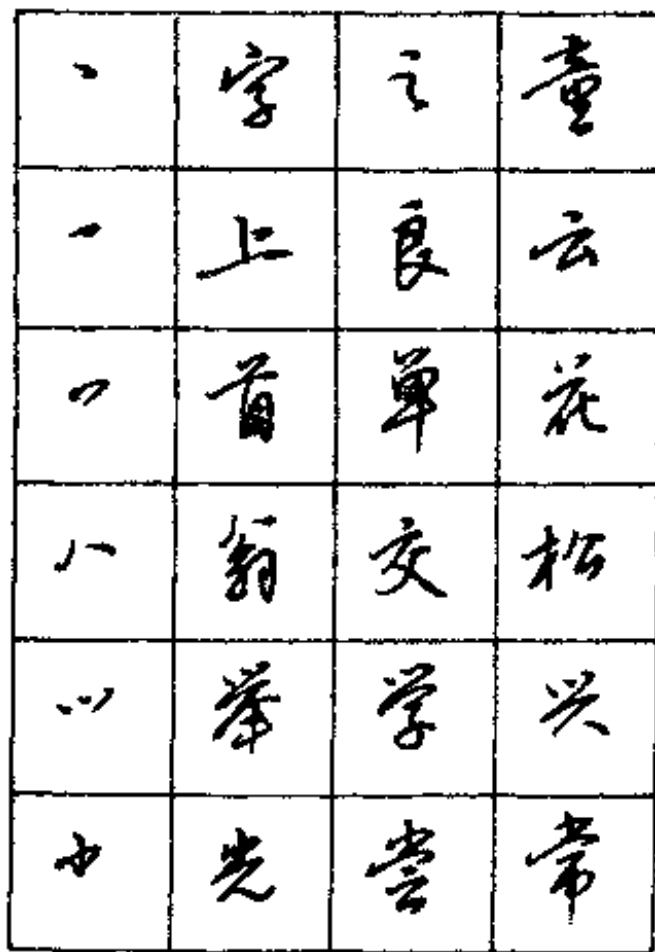 丶 字 之 童
一 上 良 云
丷 首 单 花
八 翁 交 松
⺍ 举 学 兴
⺌ 光 尝 常